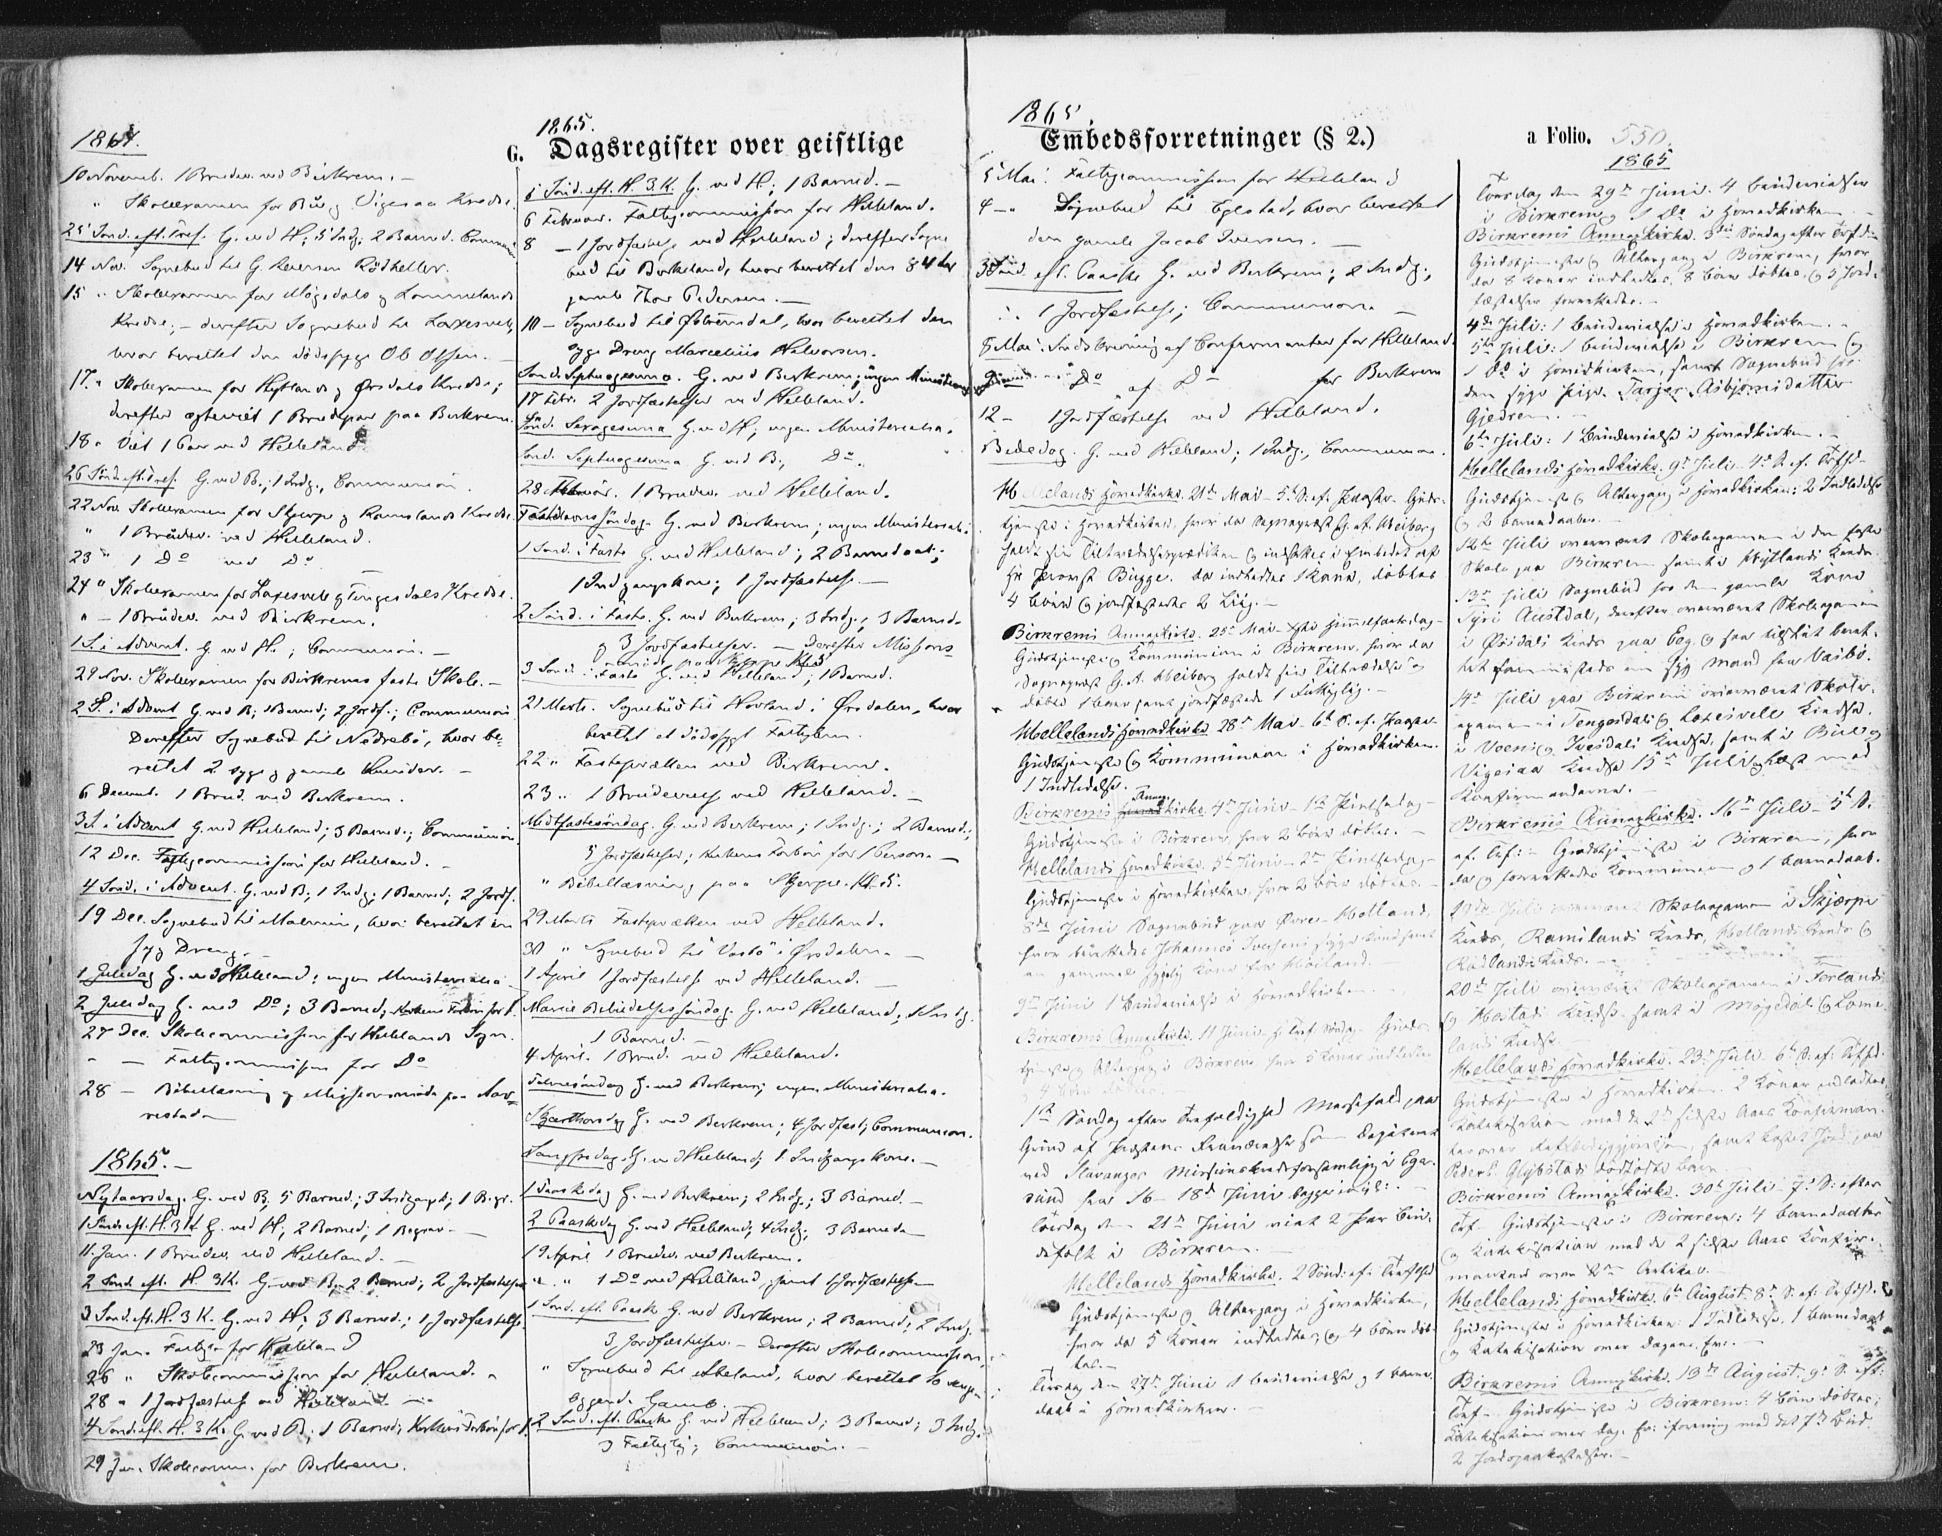 1864.
G. Dagsregister over geistlige
10 Novemb. 1 Brudev. ved Birkrem. –
" Skoleexamen for Bue og Vigesaa Kreds.
25 Sønd. eft. Tref. G. ved H; 5 Indg; 2 Barned. Commun
14 Nov. Sognebud til G. Iversen Rødheller.
15 " Skoleexamen for Møgedals og Lommelands
Kredse; – derefter Sognebud til Laxesvele,
hvor berettet den dødssyge Ole Olsen. –
17. " Skoleexamen for Hegland og Ørsdals Kredse;
derefter ægteviet 1 Brudepar paa Birkrem.
18 " Viet 1 Par ved Helleland.
26 Sønd. eft. Tref. G. ved B.; 1 Indg., Communion.
22 Nov. Skoleexamen for Skjerpe og Ramslands Kredse.
" 1 Brudev. ved Helleland.
23 " 1 Do ved Do –
24 " Skoleexamen for Laxesvele og Tengesdals Kredse.
" – 1 Brudev. ved Birkrem.
1 S. i Advent. G. ved H.; Communion. –
29 Nov. Skoleexamen for Birkrems faste Skole. –
2 S. i Advent G. ved B; 1 Barned; 2 Jordf.; Communion.
Derefter Sognebud til Nedrebø, hvor be-
rettet 2 syge og gamle Kvinder. –
6 Decemb. 1 Brud. ved Birkrem.
3 S. i Advent G. ved Helleland; 3 Barned.; Communion
12 Dec. Fattigcommission for Helleland. –
4 Sønd. i Advent. G. ved B; 1 Indg; 1 Barned; 2 Jordf.
19 Dec. Sognebud til Malmin, hvor berettet en
syg Dreng. –
1 Juledag G. ved Helleland; ingen Ministerialia.
2 Juledag G. ved Do; 3 Barned; Kirkens Forbøn for 1.
27 Dec. Skolecommission for Hellelands Sogn.
– – Fattigcommission for Do
28 – Bibellæsning og Missionsmøde paa Aar-
restad –
1865. –
Nytaarsdag. G. ved B; 5 Barned.; 3 Indgangsk; 1 Begr.
1 Sønd. eft. H. 3 K. G. ved H; 2 Barned; 1 Begrav. –
11 Jan. 1 Brudev. ved Helleland –
2 Sønd. eft. H. 3 K. G. ved B; 2 Barned; 2 Jordfæstelser
3 Sønd. eft. H. 3 K. G. ved H; 3 Barned.; 1 Jordfæstelse.
23 Jan. Fattigc. for Helleland
26 " Skolecommission for Helleland. "
28 " 1 Jordfæstelse ved Helleland –
4 Sønd. eft. H. 3 K. G. ved B; 1 Barned; Kirkens Forbøn for 1.
29 Jan. Skolecomm. for Birkrem.
1865.
5 Sønd. eft. H. 3 K. G. ved H; 1 Barned. –
6 Februar. Fattigcommission for Helleland.
8 – 1 Jordfæstelse ved Helleland; derefter Sogne
bud til Birkeland, hvor berettet den 84 Aar
gamle Thor Pedersen. –
10 – Sognebud til Østremdal, hvor berettet den
syge Dreng Marcelius Halvorsen.
Sønd. Septuagesima. G. ved Birkrem; ingen Ministerialia
17 Febr. 2 Jordfæstelser ved Helleland.
Sønd. Sexagesima G. ved H; ingen Ministerialia.
Sønd. Septuagesima G. ved B; Do.
28 Februar. 1 Brudev. ved Helleland.
Fastelavnssøndag. G. ved Birkrem; ingen Ministerial.
1 Sønd. i Faste G. ved Helleland; 2 Barnedaab;
1 Indgangskone; 1 Jordfæstelse. –
2 Sønd. i Faste. G. ved Birkrem; 3 Indg., 3 Barned.
og 3 Jordfæstelser. – Derefter Missions-
møde paa Skjerpe
3 Sønd. i Faste G. ved Helleland; 1 Barned.
21 Marts. Sognebud til Hovland i Ørsdalen, hvor
berettet et dødssygt Fattiglem.
22 " Fasteprædken ved Birkrem.
23 " 1 Brudevielse ved Helleland. –
Midtfastesøndag. G. ved Birkrem; 1 Indg.; 2 Barned;
5 Jordfæstelser; Kirkens Forbøn for 1 Person. –
" Bibellæsning paa Skjerpe Kl. 5.
29 Marts Fasteprædken ved Helleland.
30 " Sognebud til Vasbø i Ørsdalen. –
1 April 1 Jordfæstelse ved Helleland. –
Mariæ Bebudelsessøndag. G. ved Helleland; 1 Indg.
1 Barned. –
4 April. 1 Brud. ved Helleland.
Palmesøndag G. ved Birkrem; ingen Ministerialia.
Skjærthorsdag G. ved Birkrem; 4 Jordfæst; Communion.
Langfredag. G. ved Helleland; 1 Indgangskone. –
1 Paaskedag G. ved Birkrem; 2 Indg; 3 Barned. –
2 Paaskedag G. ved Helleland; 4 Indg; 3 Barned. –
19 April 1 Brudev. ved Birkrem.
" " 1 Do ved Helleland, samt 1 Jordfæstelse –
1 Sønd. eft. Paaske G. ved Birkrem; 2 Barned; 2 Indg.
3 Jordfæstelser. – Derefter Skolecommission.
" Sognebud til Abeland, hvor berettet
Gamle.
2 Sønd. eft. Paaske G. ved Helleland; 3 Barned; 3 Indg.
Communion. –
1865.
Embedsforretninger (§ 2.)
5 Mai. Fattigcommission for Helleland
4 – " Sognebud til Eglestad, hvor berettet
den gamle Jacob Iversen. –
3 Sønd. eft. Paaske G. ved Birkrem; 2 Indg;
1 Jordfæstelse; Communion. –
8 Mai. Indskrivning af Confirmanter for Helleland.
9 Do af Do for Birkrem
12 – 1 Jordfæstelse ved Helleland.
Bededag. G. ved Helleland; 1 Indg., Communion.
Hellelands Hovedkirke. 21de Mai – 5te S. ef. Paaske. Guds-
tjeneste i Hovedkirken, hvor da Sognepræst G. A. Meiberg
holdt sin Tiltrædelsesprædiken og indsattes i Embedet af
Hr Provst Bugge. Da indledtes 1 Kone, døbtes
4 Børn og jordfæstedes 2 Liig. –
Birkrems Annexkirke. 25de Mai – Chr. Himmelfartsdag –
Gudstjeneste og Kommunion i Birkrem, hvor da
Sognepræst G. A. Meiberg holdt sin Tiltrædelse og
døbte 1 Barn samt jordfæstede 1 Fattiglig. –
Hellelands Hovedkirke. 28de Mai – 6te S. ef. Paaske
Gudstjeneste og Kommunion i Hovedkirken.
1 Indledelse.
Birkrems Annexkirke. 4de Juni – 1ste Pintsedag –
Gudstjeneste i Birkrem hvor 2 Børn døbtes. –
Hellelands Hovedkirke. 5te Juni – 2den Pintsedag –
Gudstjeneste i Hovedkirken, hvor 2 Børn døbtes. –
8de Juni Sognebud paa Øvre Hetland,
hvor berettedes Johannes Iversens syge Kone samt
en gammel sygelig Kone fra Høiland. –
9de Juni 1 Brudevielse i Hovedkirken –
Birkrems Annexkirke. 11 Juni. H. Tref. Søndag. Guds-
tjeneste og Altergang i Birkrem hvor 5 Koner indledtes
og 4 Børn døbtes.
1ste Søndag efter Trefoldighed Messefald paa
Grund af Præstens Fraværelse som Deputeret
ved Stavanger Missionskredsforsamling i Eger-
sund fra 16 – 18de Juni begge incl: –
Onsdag den 21de Juni viet 2 Par Bru-
defolk i Birkrem. –
Hellelands Hovedkirke. 2 Sønd: ef: Trefold
Gudstjeneste og Altergang i Hovedkirken,
hvor da 5 Koner indledtes, og 4 Børn døb-
tes. –
Tirsdag den 27de Juni 1 Brudevielse og 1 Barne-
daab i Hovedkirken. –
a Folio. 550.
1865
Torsdag den 29de Juni. 4 Brudevielser
i Birkrem og 1 Do i Hovedkirken –
Birkrems Annexkirke. 3die Søndag efter Trefd.
Gudstjeneste og Altergang i Birkrem, hvor
da 8 Koner indledtes, 8 Børn døbtes, og 5 Jord-
fæstelser forrettedes. –
4de Juli: 1 Brudevielse i Hovedkirken. –
5te Juli: 1 Brudevielse i Birkrem og
1 Do i Hovedkirken, samt Sognebud hos
den syge Pige Tarjer Asbjørnsdatter
Gjedrem. –
6te Juli: 1 Brudevielse i Hovedkirken. –
Hellelands Hovedkirke. 9de Juli – 4de S. ef. Trefd –
Gudstjeneste og Altergang i Hovedkirken; 2 Indledelse
og 2 Barnedaaber. –
12te Juli overværet Skoleexamen i den faste
Skole paa Birkrem samt i Hegelands Kreds.
13de Juli Sognebud hos den gamle Kone
Tyri Austdal, derefter overværet Skoleexamen
i Ørsdals Kreds paa Eeg, og saa tilsidst beret-
tet sammesteds en syg Mand fra Vasbø.
14de Juli paa Birkrem overværet Skole-
examen i Tengesdals og Laxesvele Kredse.
i Veens og Ivesdals Kredse, samt i Bue og
Vigesaa Kredse 15de Juli og læst med
Konfirmanderne. –
Birkrems Annexkirke. 16de Juli – 5te S.
ef. Tref: – Gudstjeneste i Birkrem, hvor
da og forrettedes Kommunion og 1 Barnedaab.
Juli overværet Skoleexamen i Skjærpe
Kreds, Ramslands Kreds, Hetlands Kreds og
Rødlands Kreds. –
20de Juli overværet Skoleexamen i Torlands
og Mostads Kredse samt i Møgedals og Lome-
lands Kredse
Hellelands Hovedkirke. 23de Juli 6te S. ef: Trefd.
Gudstjeneste i Hovedkirken. 2 Koner indledtes,
Katekisation med de 2de sidste Aars Konfirman-
ter over Retfærdiggjørelsen, samt kastet Jord paa
Peder Glypstads dødfødte Barn. –
Birkrems Annexkirke. 30te Juli 7de S: efter
Tref – Gudstjeneste i Birkrem: 4 Barnedaaber
og Katekisation med de 2 sidste Aars Konfir-
manter over 2den Artikel. –
Hellelands Hovedkirke. 6te August. 8de S. ef: Trefd.
Gudstjeneste i Hovedkirken. 1 Indledelse. 1 Barnedaab
og Katekisation over Dagens Ev: –
Birkrems Annexkirke. 13de August. 9de S. eft:
Tref – Gudstjeneste i Birkrem: 4 Børn døbtes;
Katekisation over Dag. Ev: i Forening med det 7de Bud.
2 Jordpaakastelser. –